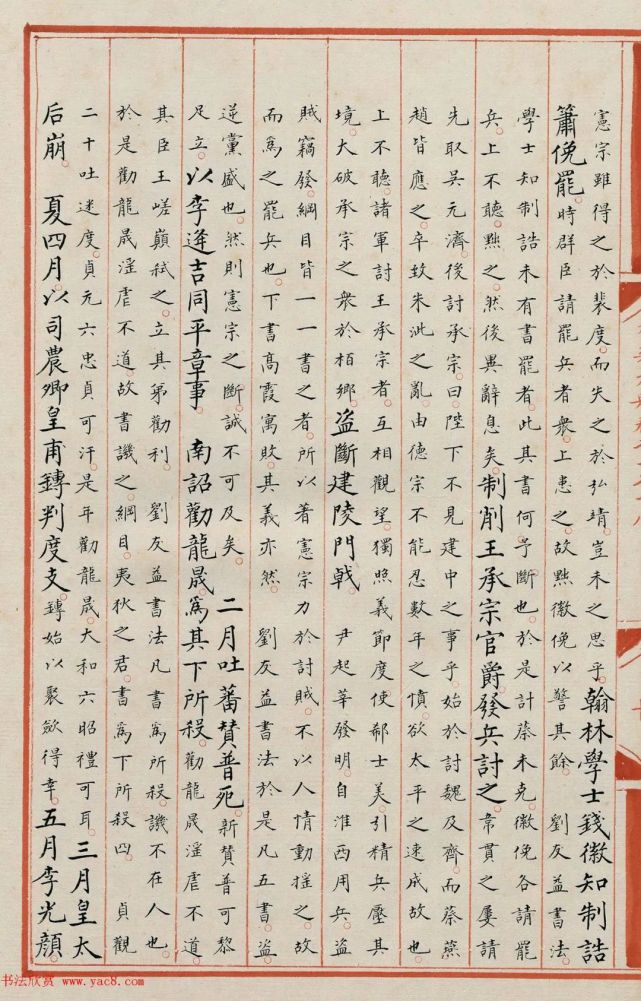 憲宗雖得之於裴度。而失之於弘靖。豈未之思乎。翰林學士錢徽知制誥
蕭俛罷。時群臣請罷兵者衆。上患之。故黜徽俛以警其餘 劉友益書法。
學士知制誥未有書罷者。此其書何。予斷也。於是討蔡未克。徽俛各請罷
兵。上不聽。黜之。然後異辭息矣。制削王承宗官爵發兵討之。韋貫之屢請
先取吳元濟。後討承宗。曰。陛下不見建中之事乎。始於討魏及齊。而蔡燕
趙皆應之。卒致朱泚之亂。由德宗不能忍數年之憤。欲太平之速成故也。
上不聽。諸軍討王承宗者。互相觀望。獨照義節度使郗士美引精兵壓其
境。大破承宗之衆於栢鄉。盜斷建陵門戟。 尹起莘發明。自淮西用兵。盜
賊竊發。綱目皆一一書之者。所以著憲宗力於討賊。不以人情動揺之。故
而爲之罷兵也。下書高霞寓敗。其義亦然。 劉友益書法。於是凡五書盜
逆黨盛也。然則憲宗之斷。誠不可及矣。 二月吐蕃贊普死。新贊普可黎
足立。以李逢吉同平章事。 南詔勸龍晟。爲其下所殺。勸龍晟淫虐不道。
其臣王嵯巔弒之。立其弟勸利 劉友益書法。凡書爲所殺。譏不在人也。
於是勸龍晟淫虐不道。故書譏之。綱目。夷狄之君。書爲下所殺四。 貞觀
二十吐迷度。貞元六忠貞可汗。是年勸龍晟。大和六昭禮可耳。三月皇太
后崩。 夏四月。以司農卿皇甫鏄判度支。鏄始以聚斂得幸。五月李光顔
书法欣赏 www.yac8.com